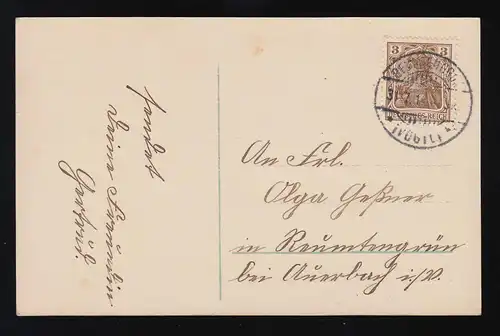 sendet
Deine Freundin
Gertrud.
3
3
REICH
(VOGTL)
An Frl.
Olga Geßner
in Reumtengrün
bei Auerbach i/V.